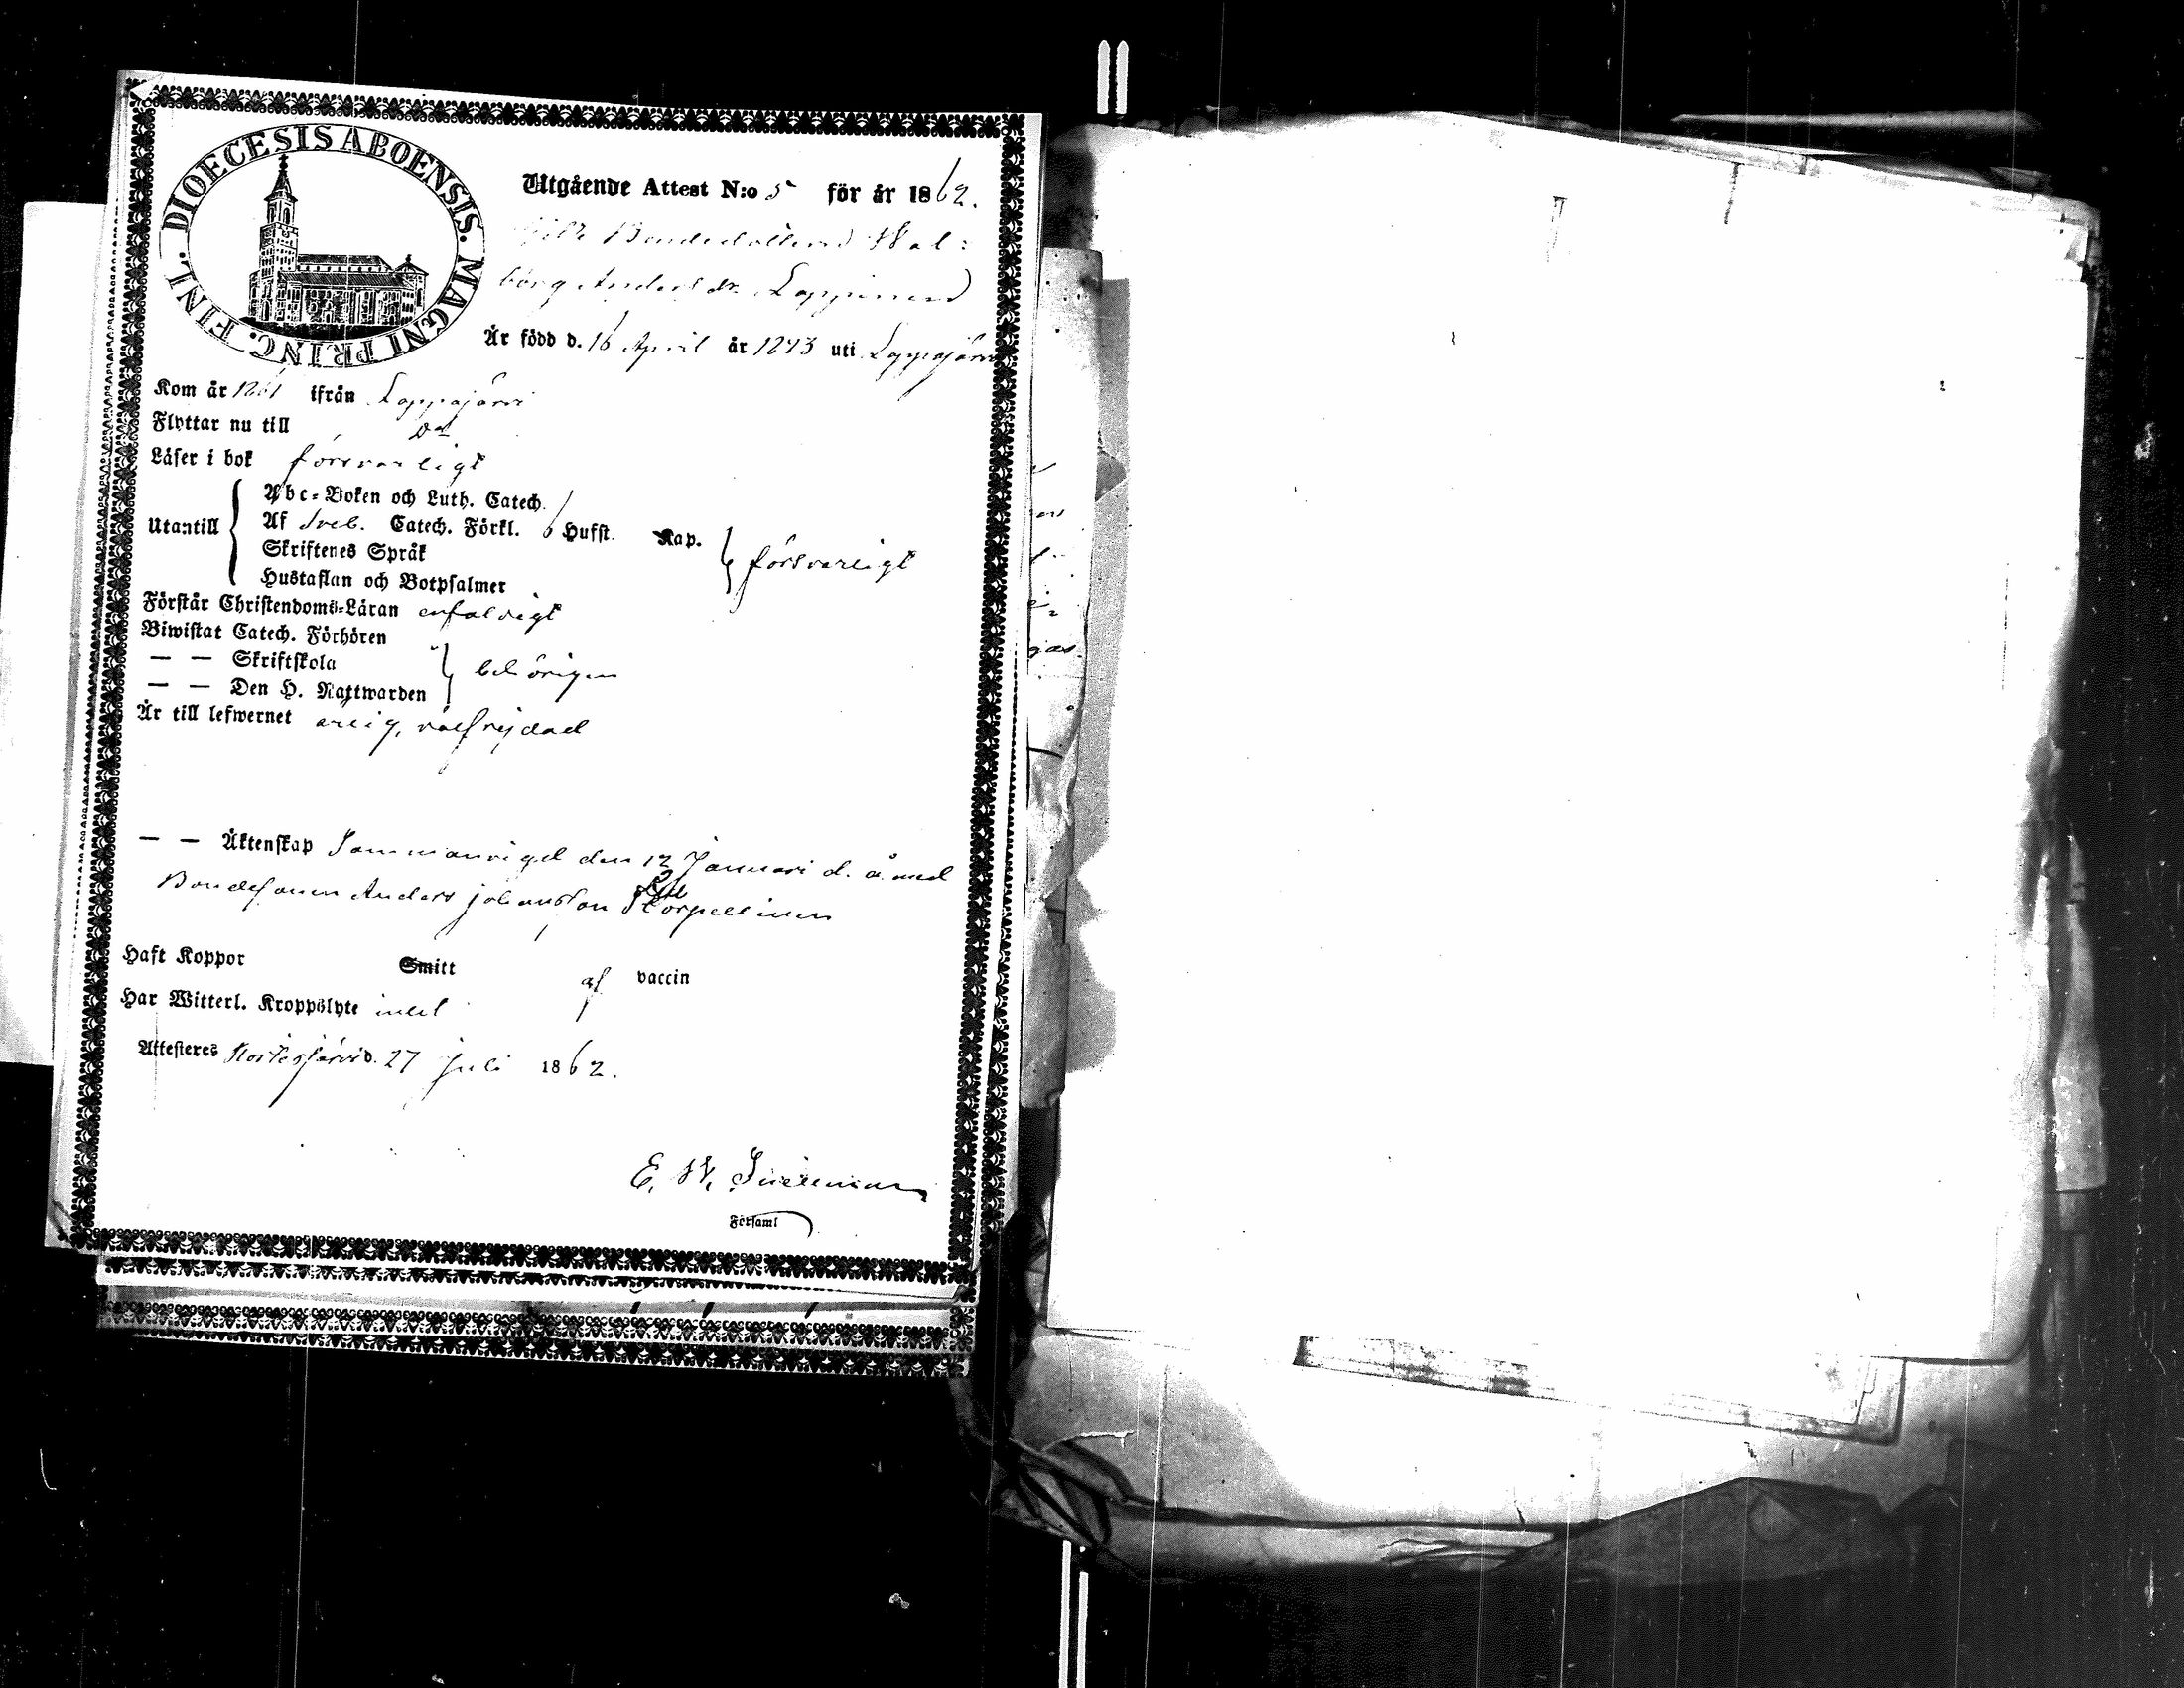 DIOECESIS ABOENSIS. MAGNI PRINC. FINL.
Utgående Attest N:o 5 för år 1862.
Bondedottren Wal-
borg Andersdr. Loppinen
Är född d. 16 April år 1843 uti Lappajärvi
Kom år 1861 ifrån Lappajärvi
Flyttar nu till Do
Läser i bok försvarligt
Utantill
Abc-Boken och Luth. Catech.
Af Sveb. Catech. Förkl. 6 Hufst. Kap.
Skriftenes Språk
Hustaflan och Botpsalmer
försvarligt
Förstår Christendoms-Läran enfaldigt
Biwistat Catech. Förhören
— — Skriftskola
— — Den H. Nattwarden
behörigen
Är till lefwernet ärlig, välfrejdad
— — Äktenskap Sammanvigd den 12 Januari d. å. med
Bondesonen Anders Johansson
Haft Koppor Smitt af vaccin
Har Witterl. Kroppslyte intet
Attesteres Kortesjärvi d. 27 Juli 1862.
E. W.
Församl